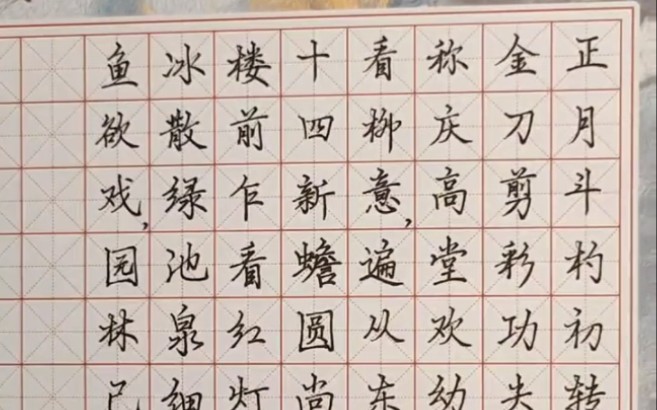 正月斗杓初转
金刀剪彩功夫
称庆高堂欢幼
看柳意,遍从东
十四新蟾圆尚
楼前乍看红灯
冰散绿池泉细
鱼欲戏,园林已